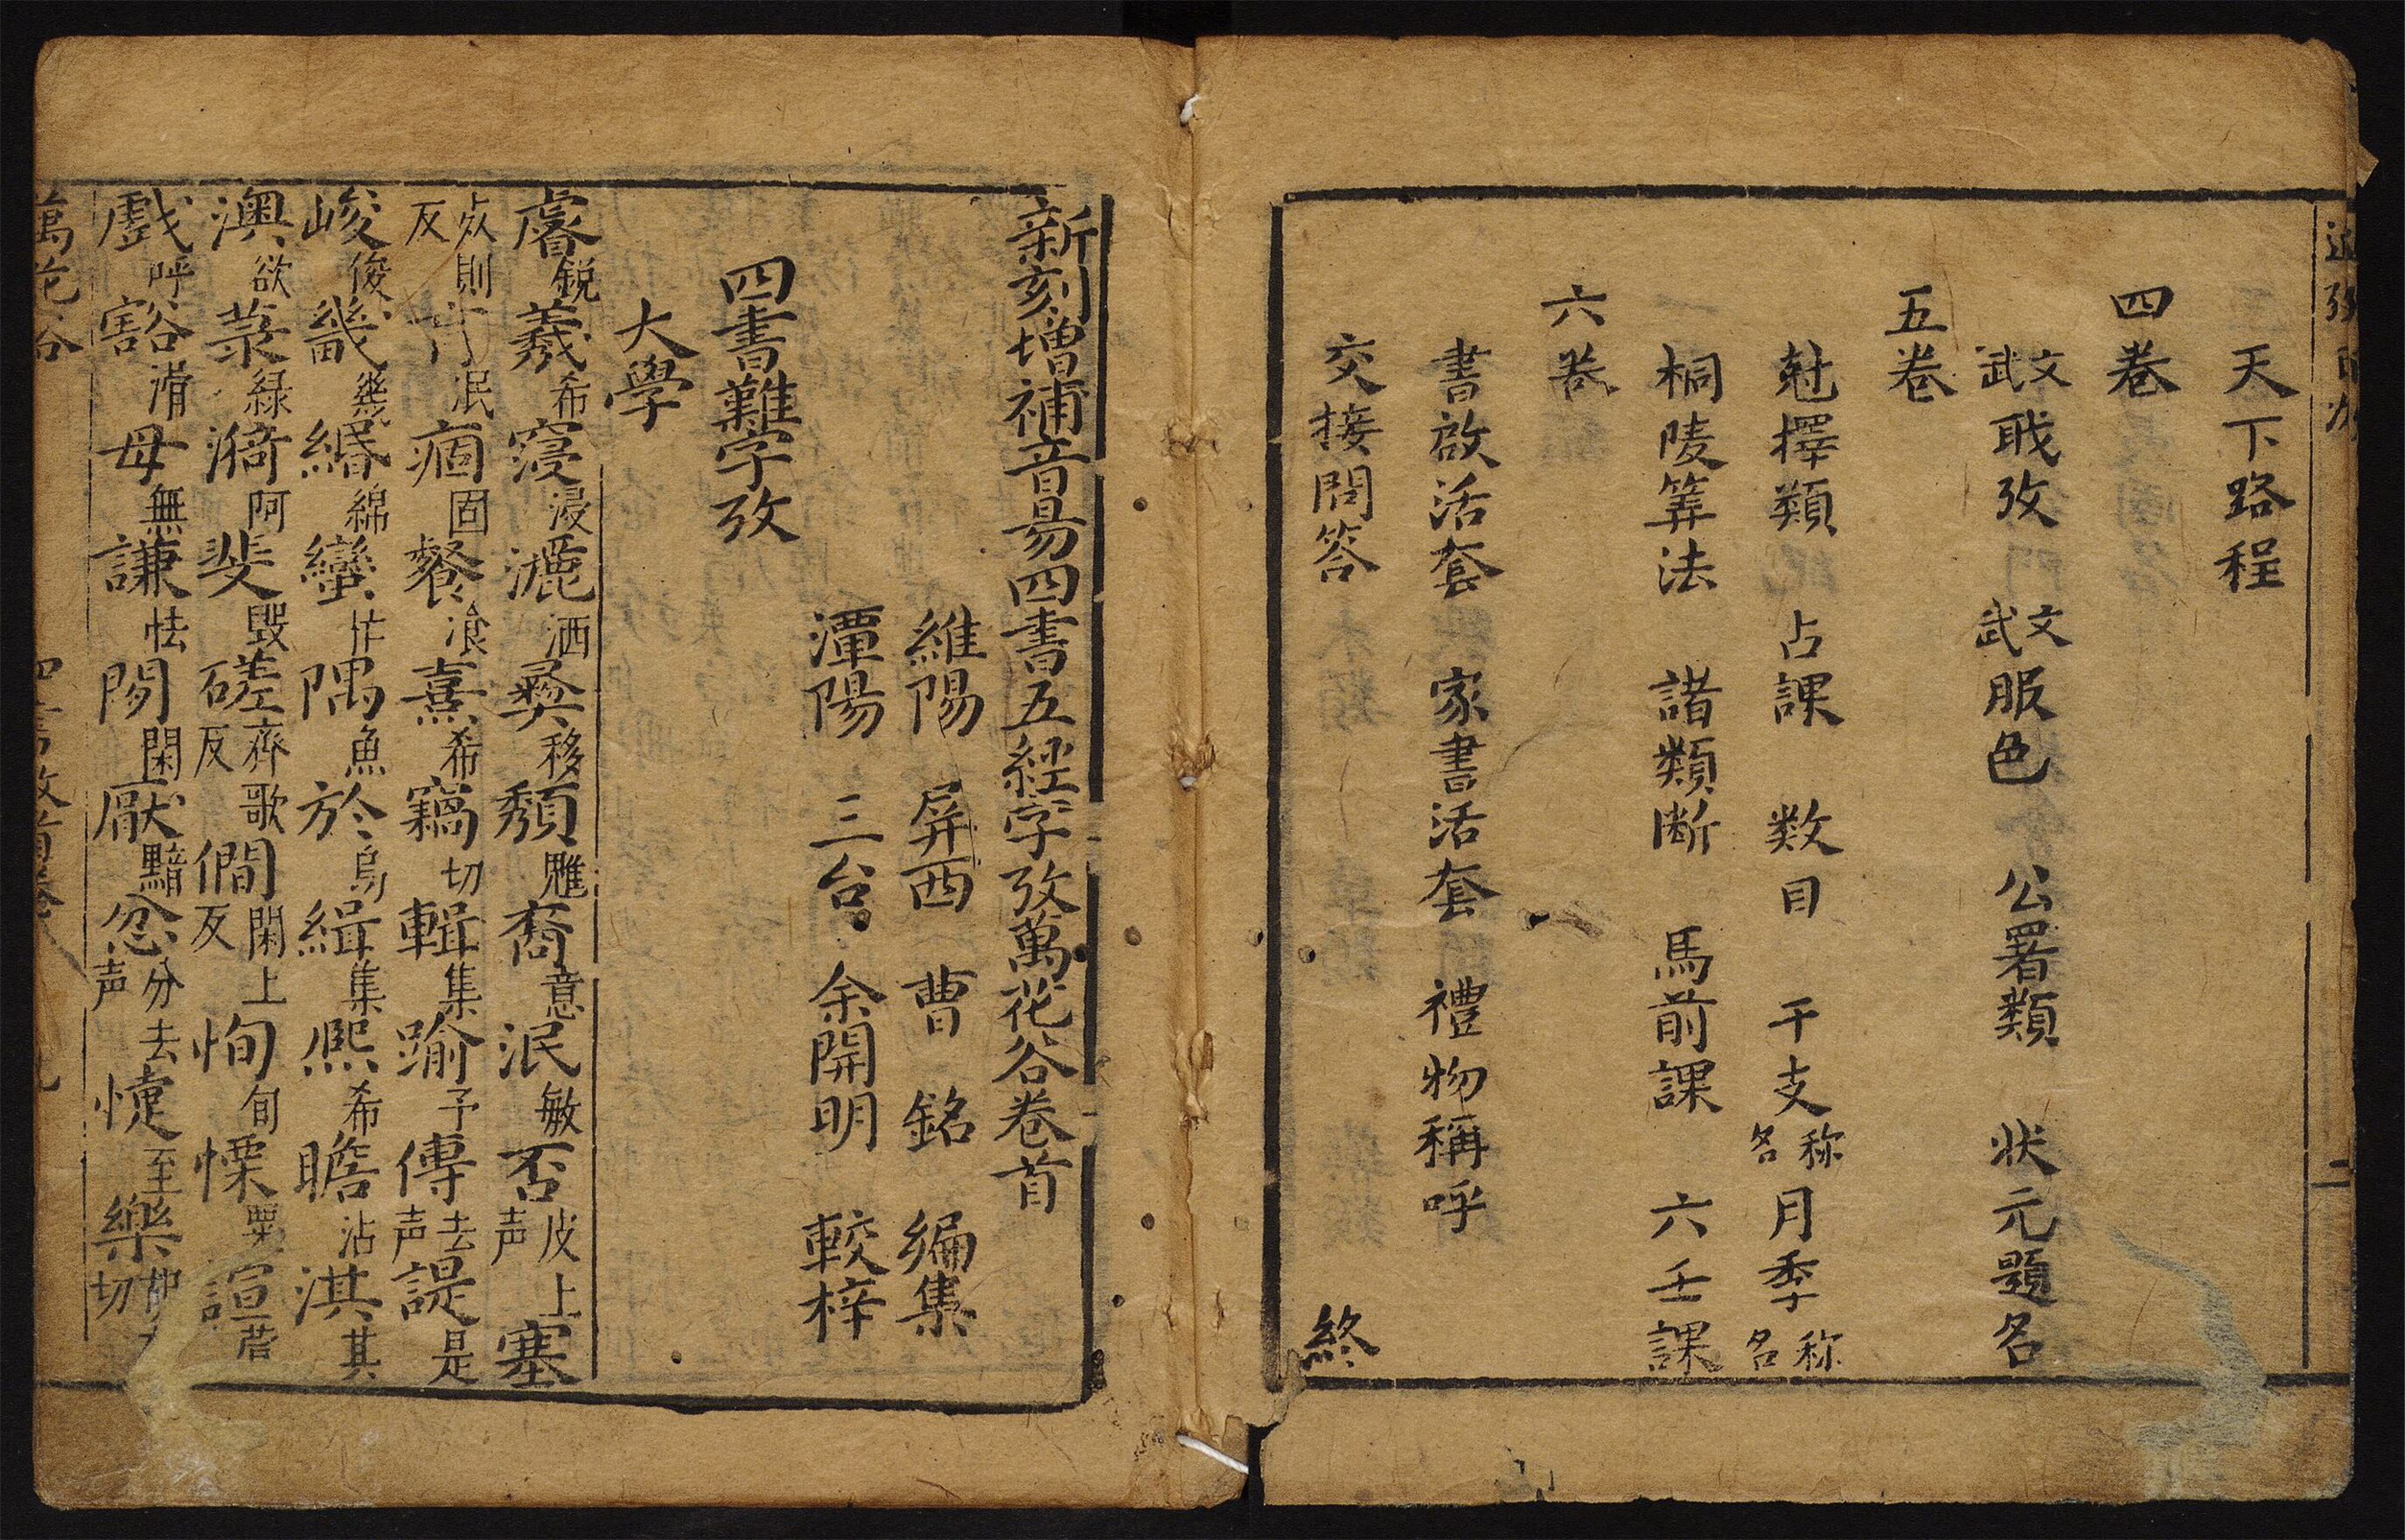 天下路程
四卷
文武戝攷 文武服色 公署類 状元題名
五卷
尅擇類 占課 数目 干支称名 月季称名
桐陵筭法 諸類断 馬前課 六壬課
六卷
書啟活套 家書活套 禮物稱呼
交接問答 終
新刻增補音易四書五經字攷萬花谷卷首
維陽 屏西 曹銘 編集
潭陽 三台 余開明 較梓
四書難字攷
大學
睿鋭羲希寖浸灑洒彛移頹雕裔意泯敏否皮上声塞
泯痼固餐飡熹希竊切輯集踰予傳去声諟是
峻俊畿緡綿蠻隅魚於烏緝集熙希瞻沾淇其
澳欲菉緑漪阿斐毁磋齐歌反僩閑上反恂旬慄栗諠
戲呼豁滑毋無謙怯閑厭黯忿分去声懥至樂切
萬花谷